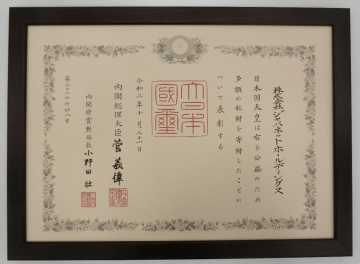 株式会社ジャパネットホールディングス
日本国天皇は右を公益のため
多額の私財を寄附したことに
ついて表彰する
大日本
國璽
令和二年十月三十一日
内閣総理大臣 菅義偉
内閣府賞勲局長 小野田壮